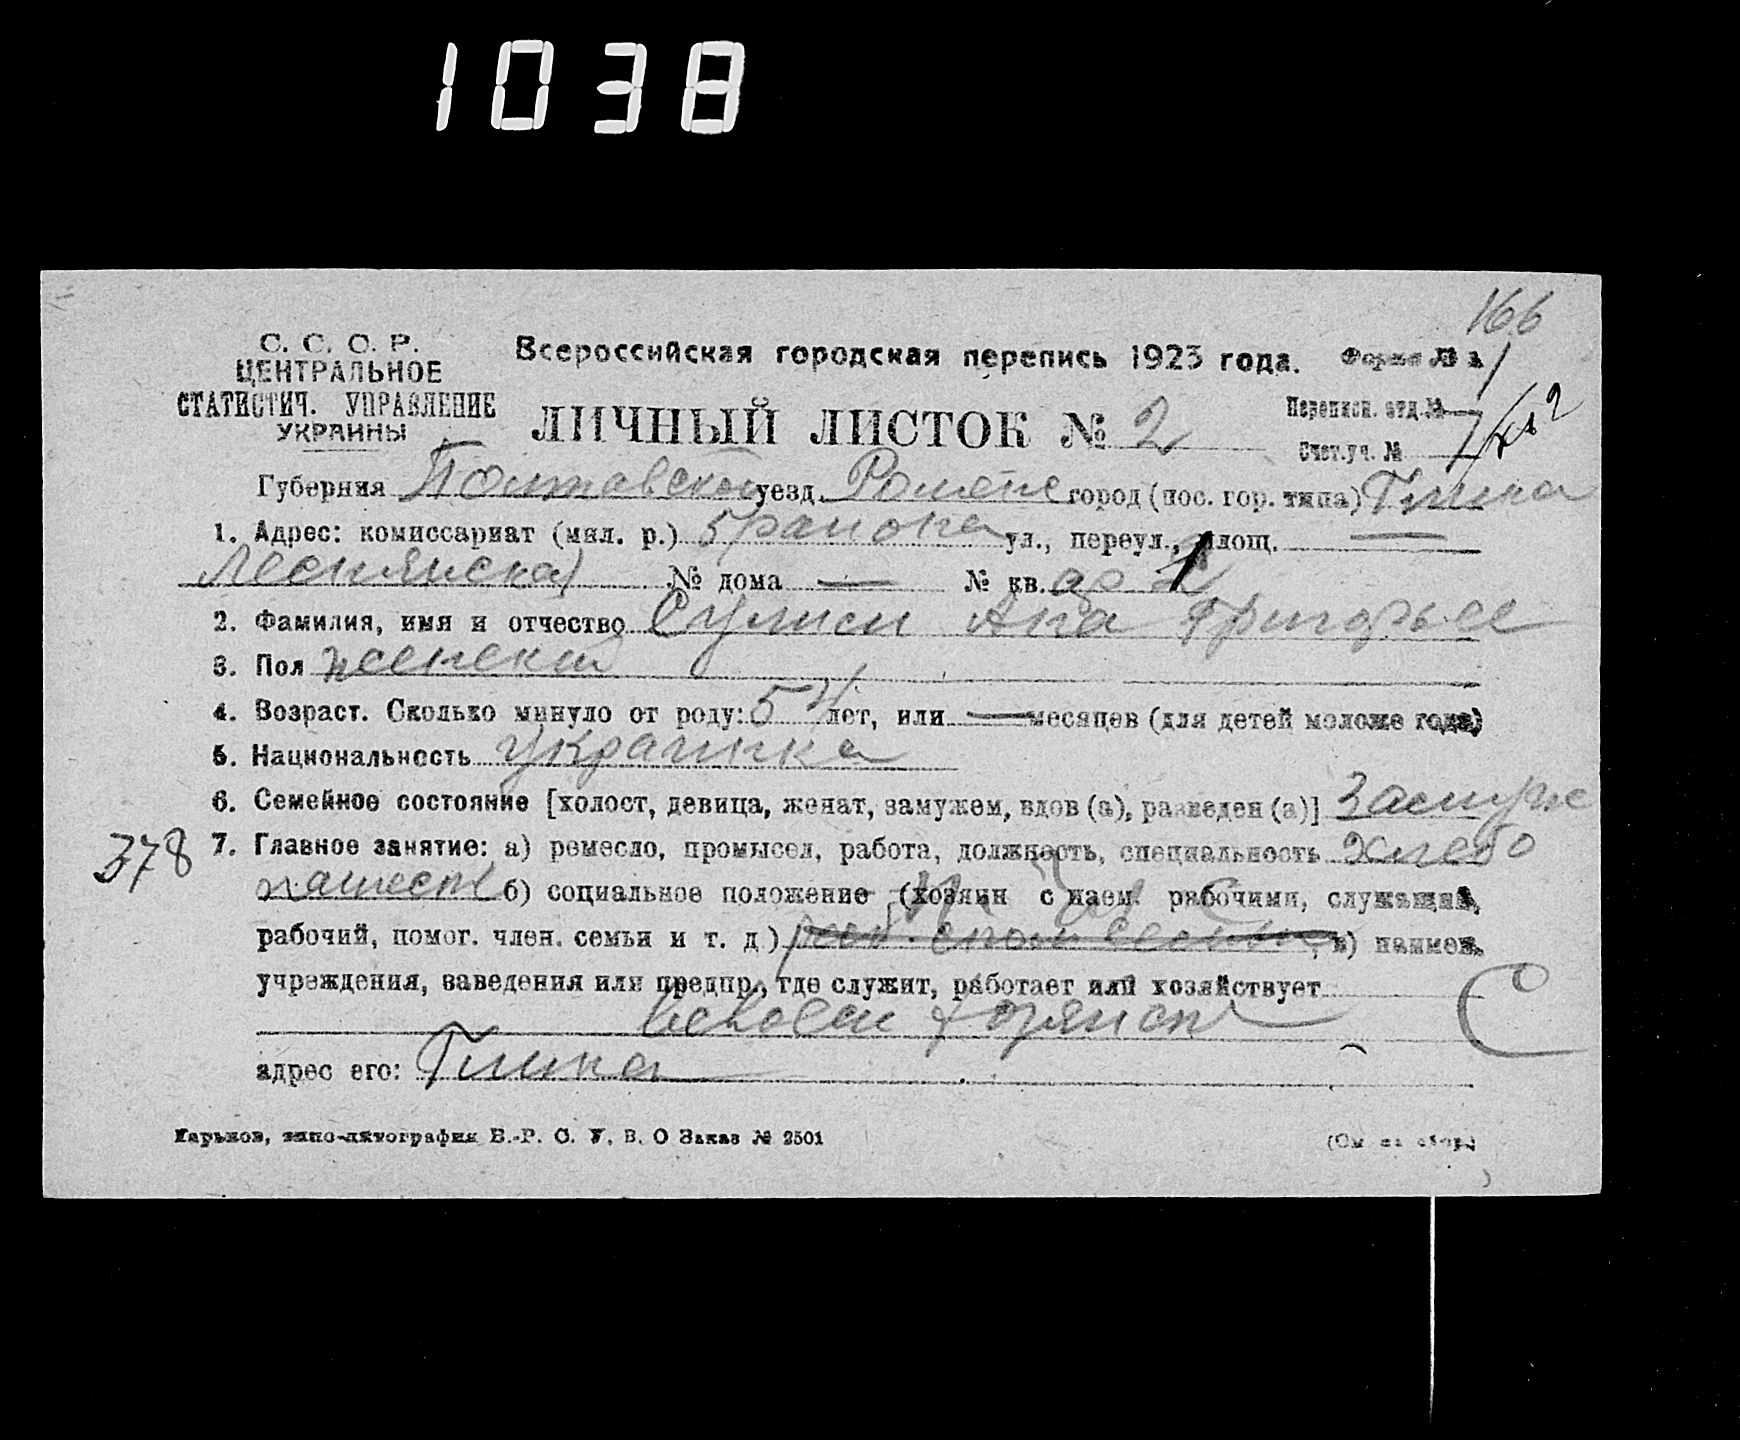 1038
166
С. С. С. Р.
ЦЕНТРАЛЬНОЕ
СТАТИСТИЧ. УПРАВЛЕНИЕ
УКРАИНЫ
Всероссийская городская перепись 1923 года. Форма № 1
ЛИЧНЫЙ ЛИСТОК № 2
Переписн. отд. №
Счет. уч. №
Губерния Полтавской уезд. Ромене город (пос. гор. типа) Глинка
1. Адрес: комиссариат (мил. р.) 5 района ул., переул., площ. —
№ дома — № кв.
2. Фамилия, имя и отчество Ана Григорьев
3. Пол женский
4. Возраст. Сколько минуло от роду: 54 лет, или — месяцев (для детей моложе года)
5. Национальность украинка
6. Семейное состояние [холост, девица, женат, замужем, вдов (а), разведен (а)] Замуже
378
7. Главное занятие: а) ремесло, промысел, работа, должность, специальность хлебо
пашест б) социальное положение (хозяин с наем. рабочими, служащий,
рабочий, помог. член. семьи и т. д) в) наимен.
учреждения, заведения или предпр., где служит, работает или хозяйствует
С
адрес его: Глинка
Харьков, типо-литография В.-Р. С. У. В. О Заказ № 2501
(См на обор.)